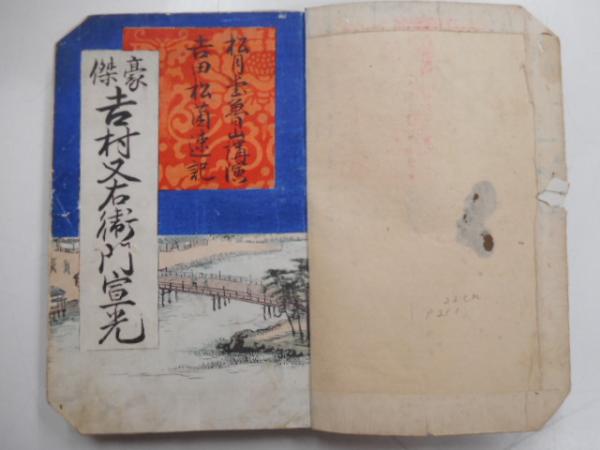 松月堂魯山講演
吉田松茵速記
豪傑
吉村又右衛門宣光
22cm